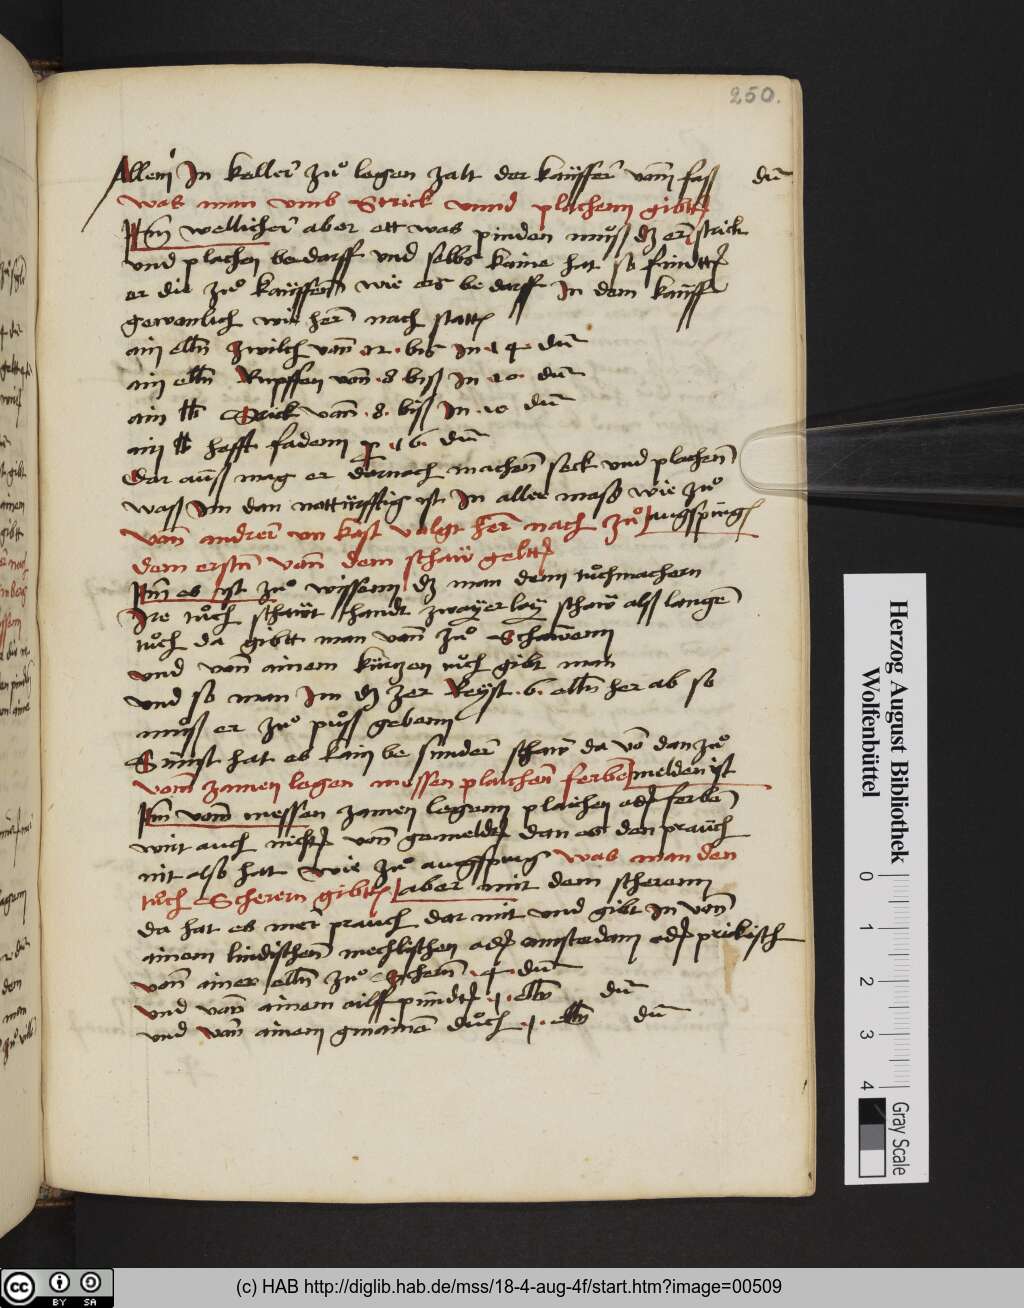 250.
Allein In keller zů legen zalt der kauffer vam fass dn̄
was man vmb Strick vnnd plachenn gibtt
Itm wellicher aber ett was pinden můss dz er strick
vnd plachen bedarff vnd selbs kaine hat so findtt
er die zů kauffenn wie ers bedarff In dem kauff
gewonlich wie hern̄ nach statt
ain elln̄ zwilch van̄ 12 . bis In 14 . dn̄
ain elln̄ Rupffen von̄ . 8 biss In 10 . dn̄
ain lb Strick van̄ . 8 . biss In . 10 dn̄
ain lb hafft faden p . 16 . dn̄
Dar auss mag er dornach machenn̄ seck vnd plachenn̄
wass Im dan nottürfftig ist In aller mass wie zů
augspurg
Von andren vn kast volgt hern̄ nach zů
dem erstn̄ van̄ dem schaw geltt
Itm es ist zů wissenn dz man denn tůchmachern
Ire tůch schawt handt zwayerlay schaw alss lange
tůch da gibtt man von̄ zů Schawenn
vnd von̄ ainem kürtzen tůch gibt man
vnd so man Im dz zer Reyst . 6 . elln̄ her ab so
můss er zů půss gebenn
Sunst hat es kain besunder schaw da vō dan zů
melden ist
vom̄ zamen legen messen plaichenn̄ ferben
Itm vonn̄ messen zamen legenn plaichen od ferben
wirt auch nichtz von̄ gemeldt dan es den prauch
nit also hat wie zů augspurg was man den
tůch Scherern gibtt aber mit dem scherenn
da hat es mer prauch dar mit vnd gibt In von̄
ainem lindischenn̄ mechlischen od amsterdam od prickisch
von̄ ainer elln̄ zů schern̄ . 4 . dn̄
vnd van̄ ainem ailff pundt . 1 . elln̄ dn̄
vnd van̄ ainem gmainē důch . 1 . elln̄ dn̄
Herzog August Bibliothek
Wolfenbüttel
0 1 2 3 4
Gray Scale
cc BY SA
(c) HAB http://diglib.hab.de/mss/18-4-aug-4f/start.htm?image=00509